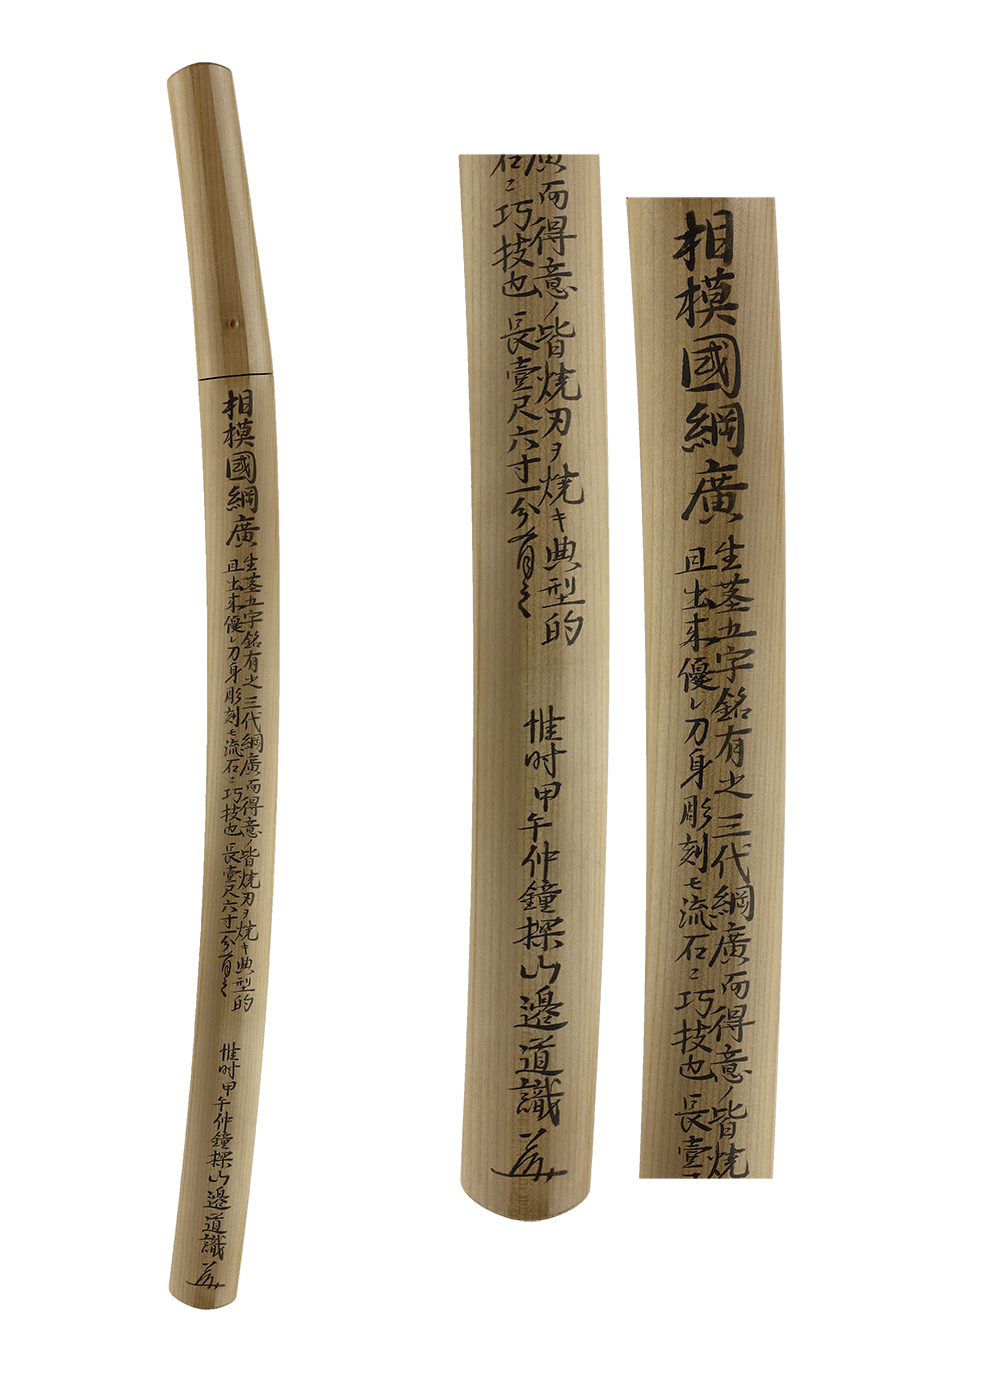 相模國綱廣
生茎五字銘有之 三代綱廣而得意ノ皆焼刃ヲ焼キ典型的
且出来優レ刀身彫刻モ流石ニ巧技也 長壹尺六寸一分有之
惟时甲午仲鐘探山邊道識
廣而得意ノ皆焼刃ヲ焼キ典型的
石ニ巧技也 長壹尺六寸一分有之
惟时甲午仲鐘探山邊道識
相模國綱廣
生茎五字銘有之 三代綱廣而得意ノ皆焼
且出来優レ刀身彫刻モ流石ニ巧技也 長壹